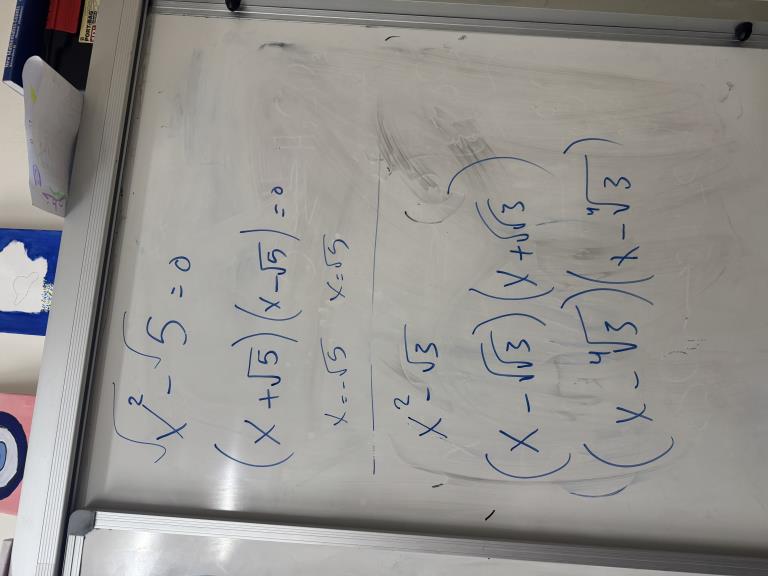 √x² - √5 = 0
(x + √5)(x - √5) = 0
x = -√5 x = √5
x² - √3
(x - √√3)(x + √√3)
(x - ⁴√3)(x - ⁴√3)